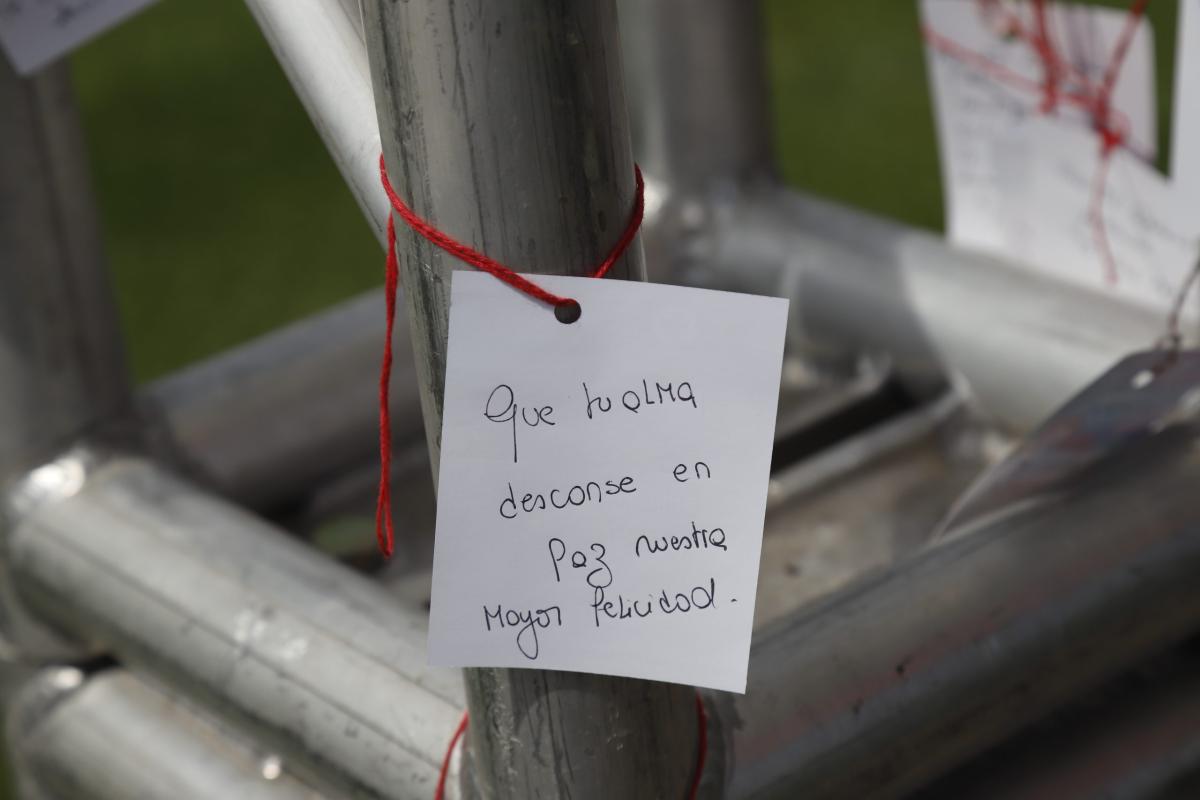 Que tu alma
desconse en
Paz nuestra
Mayor felicidad.